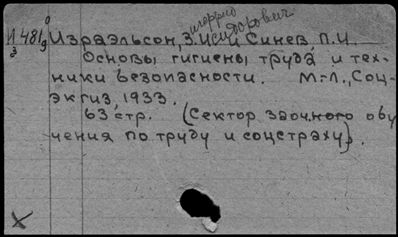 Исидорович
И 481
3 9
Израэльсон, З. И. и Синев П. И.
Основы гигиены труда и тех-
ники безопасности. М.-Л., Соц-
экгиз, 1933.
63 стр. (Сектор заочного обу
чения по труду и соцстраху).